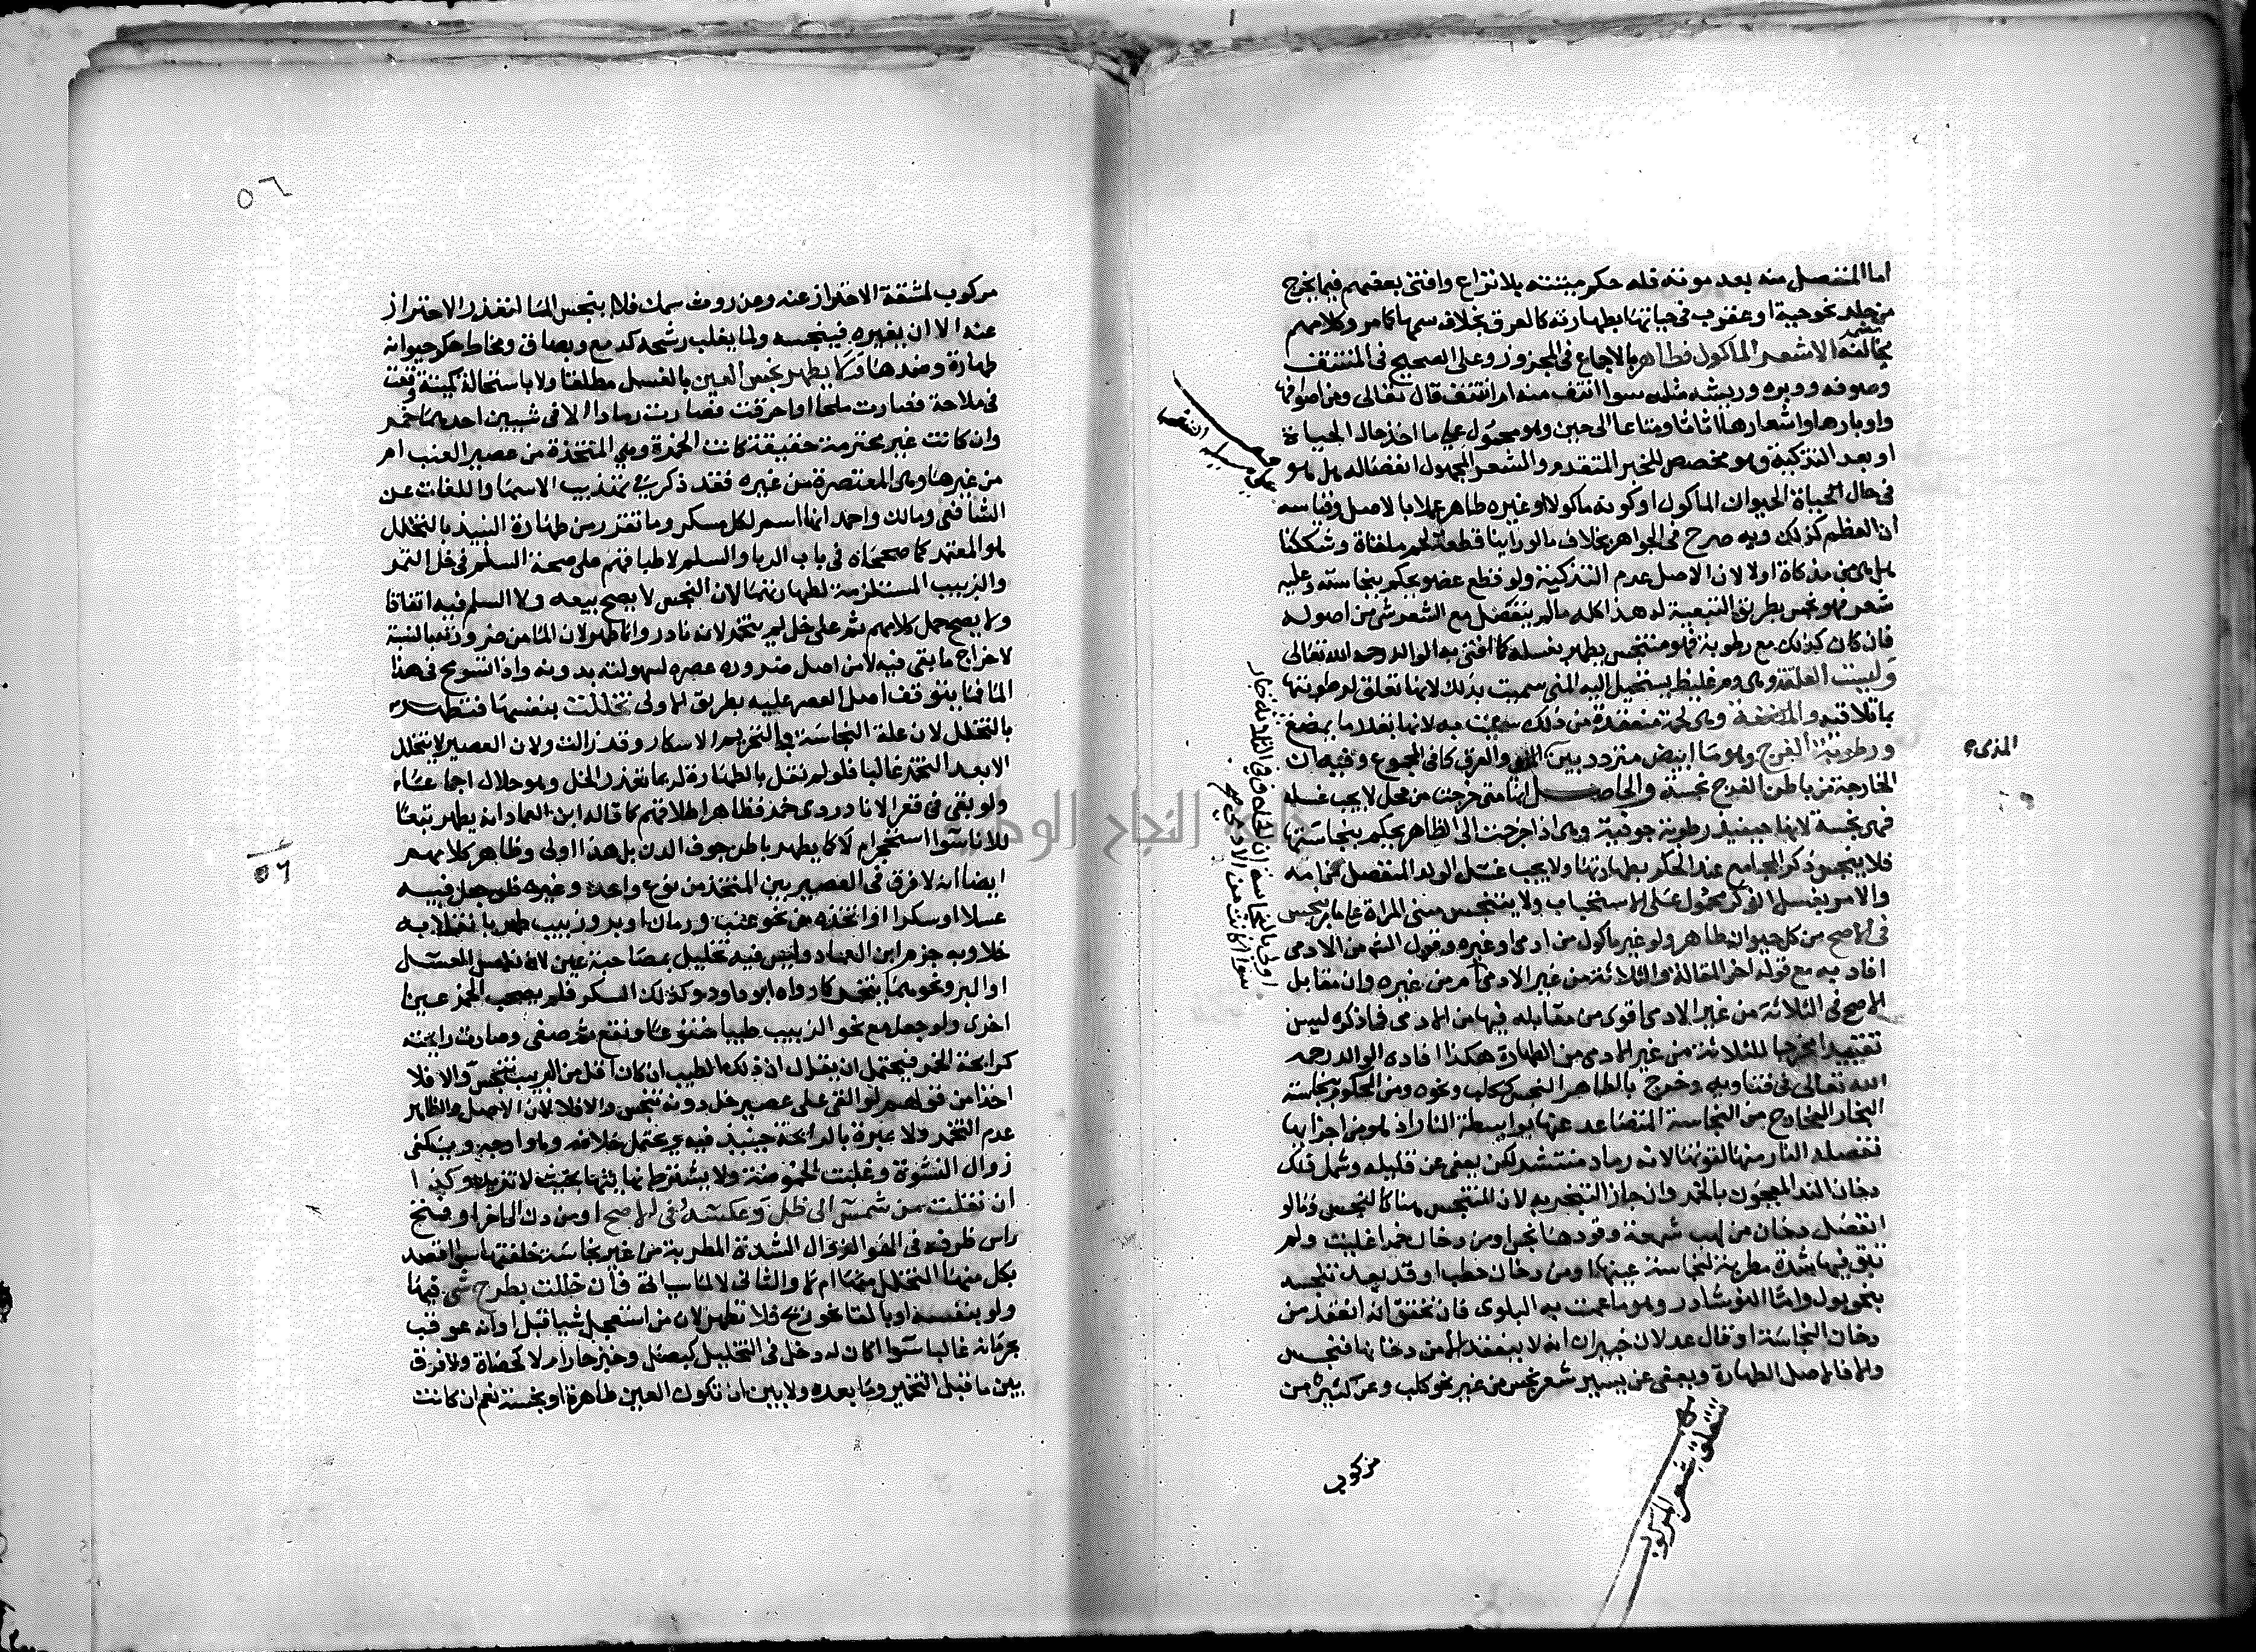 اما المنفصل منه بعد موته فله حكم ميتته بلا نزاع وافتى بعضهم فيما يخرج
من جلد نحو حية او عقرب في حياتها بطهارته كالعرق بخلاف سمها كما مر وكلامهم
يخالفه الا شعر الماكول فطاهر بالاجماع في المجزوز وعلى الصحيح في المنتتف
وصوفه ووبره وريشه مثله سوا انتف منه ام انتتف قال تعالى ومن اصوافها
واوبارها واشعارها اثاثا ومتاعا الى حين وهو محمول على ما اخذ حال الحياة
او بعد التذكية وهو مخصص للخبر المتقدم والشعر المجهول انفصاله هل هو
في حال الحياة الحيوان الماكول او كونه ماكولا او غيره طاهر عملا بالاصل وقياسه
ان العظم كذلك وبه صرح في الجواهر بخلاف ما لو راينا قطعة لحم ملقاة وشككنا
هل هي من مذكاة او لا لان الاصل عدم التذكية ولو قطع عضو يحكم بنجاسته وعليه
شعر فهو نجس بطريق التبعية له هذا كله ما لم ينفصل مع الشعر شي من اصوله
فان كان كذلك مع رطوبة فهو متنجس يطهر بغسله كما افتى به الوالد رحمه الله تعالى
وليست العلقة وهي دم غليظ يستحيل اليه المني سميت بذلك لانها تعلق لرطوبتها
بما تلاقيه والمضغة وهي لحمة منعقدة من ذلك سميت به لانها بقدر ما يمضغ
ورطوبة الفرج وهو ما ابيض متردد بين والعرق كما في المجموع وفيه ان
المذي
الخارجة من باطن الفرج نجسة والحاصل انها متى خرجت من محل لا يجب غسله
فهي نجسة لانها حينيذ رطوبة جوفية وهي اذا خرجت الى الظاهر يحكم بنجاستها
فلا ينجس ذكر المجامع عند الحكم بطهارتها ولا يجب غسل الولد المنفصل عن امه
والامر بغسل الذكر محمول على الاستحباب ولا يتنجس مني المراة على ما مر بنجس
في الاصح من كل حيوان طاهر ولو غير ماكول من ادمي او غيره وقول المتن من الادمي
افاد به مع قوله اخر المقالة والثلاثة من غير الادمي ام من غيره وان مقابل
الاصح في الثلاثة من غير الادمي اقوى من مقابله فيها من الادمي فما ذكره ليس
تقييدا مخرجا للثلاثة من غير الادمي من الطهارة هكذا افاده الوالد رحمه
الله تعالى في فتاويه وخرج بالطاهر النجس ككلب ونحوه ومن المحكوم بنجاسته
البخار الخارج من النجاسة المتصاعد عنها بواسطة النار اذ هو من اجزايها
تفصله النار منها لقوتها لانه رماد منتشر لكن يعفى عن قليله وشمل ذلك
دخان الند المعجون بالخمر وان جاز التبخر به لان المتنجس هنا كالنجس وما لو
انفصل دخان من لهب شمعة وقودها نجس او من دخان خمر اغليت ولم
تبق فيها شدة مطربة لنجاسة عينها او من دخان حطب اوقد بعد تنجسه
بنحو بول واما النوشادر وهو مما عمت به البلوى فان تحقق انه انعقد من
دخان النجاسة او قال عدلان خبيران انه لا ينعقد الا من دخانها فنجس
والا فالاصل الطهارة ويعفى عن يسير شعر نجس من غير نحو كلب وعن كثيره من
مركوب
مركوب لمشقة الاحتراز عنه وعن روث سمك فلا ينجس الما لتعذر الاحتراز
عنه الا ان يغيره فينجسه ولما يغلب رشحه كدمع وبصاق ومخاط حكم حيوانه
طهارة وضدها ولا يطهر نجس العين بالغسل مطلقا ولا باستحالة كميتة وقعت
في ملاحة فصارت ملحا او احرقت فصارت رمادا الا في شيين احدهما خمر
وان كانت غير محترمة حقيقة كانت الخمرة وهي المتخذة من عصير العنب ام
من غيرها وهي المعتصرة من غيره فقد ذكر في تهذيب الاسما واللغات عن
الشافعي ومالك واحمد انها اسم لكل مسكر وما تقرر من طهارة النبيذ بالتخلل
هو المعتمد كما صححاه في باب الربا والسلم لاطباقهم على صحة السلم في خل التمر
والزبيب المستلزمة لطهارتهما لان النجس لا يصح بيعه ولا السلم فيه اتفاقا
ولا يصح حمل كلامهم ثم على خل لم يتخمر لانه نادر وانما طهر لان الما من ضرورته بالنسبة
لاخراج ما بقي فيه لا من اصل ضروره عصره لسهولته بدونه واذا تسومح في هذا
الما فما يتوقف اصل العصر عليه بطريق الاولى تخللت بنفسها فتطهر
بالتخلل لان علة النجاسة والتحريم الاسكار وقد زالت ولان العصير لا يتخلل
الا بعد التخمر غالبا فلو لم نقل بالطهارة لربما تعذر الخل وهو حلال اجماعا
ولو بقي في قعر الانا دردي خمر فظاهر اطلاقهم كما قاله ابن العماد انه يطهر تبعا
للانا سوا استحجر ام لا كما يطهر باطن جوف الدن بل هذا اولى وظاهر كلامهم
ايضا انه لا فرق في العصير بين المتخذ من نوع واحد وغيره فلو جعل فيه
عسلا او سكرا او اتخذه من نحو عنب ورمان او بر وزبيب طهر بانقلابه
خلا وبه جزم ابن العماد وليس فيه تخليل بمصاحبة عين لان نفس العسل
او البر ونحوهما يتخمر كما رواه ابو داود وكذلك السكر فلم يصحب الخمر عينا
اخرى ولو جعل مع نحو الزبيب طيبا متنوعا ونقع ثم صفي وصارت رايحته
كرايحة الخمر فيحتمل ان يقال ان ذلك الطيب ان كان اقل من الزبيب تنجس والا فلا
اخذا من قولهم لو القي على عصير خل دونه تنجس والا فلا لان الاصل والظاهر
عدم التخمر ولا عبرة بالرايحة حينيذ فيه ويحتمل خلافه وهو اوجه ويكفي
زوال النشوة وغلبت الحموضة ولا يشترط نهايتها بحيث لا تزيد وكذا
ان نقلت من شمس الى ظل وعكسه في الاصح او من دن الى اخر او فتح
راس ظرفه في الهوا لزوال الشدة المطربة من غير نجاسة خلفتها سوا اقصد
بكل منهما التخلل منهما ام لا والثاني لا لما ياتي فان خللت بطرح شي فيها
ولو بنفسه او بالقا نحو ريح فلا تطهر لان من استعجل شيا قبل اوانه عوقب
بحرمانه غالبا سوا اكان له دخل في التخليل كبصل وخبز حار ام لا كحصاة ولا فرق
بين ما قبل التخمر وما بعده ولا بين ان تكون العين طاهرة او نجسة نعم ان كانت
٥٦